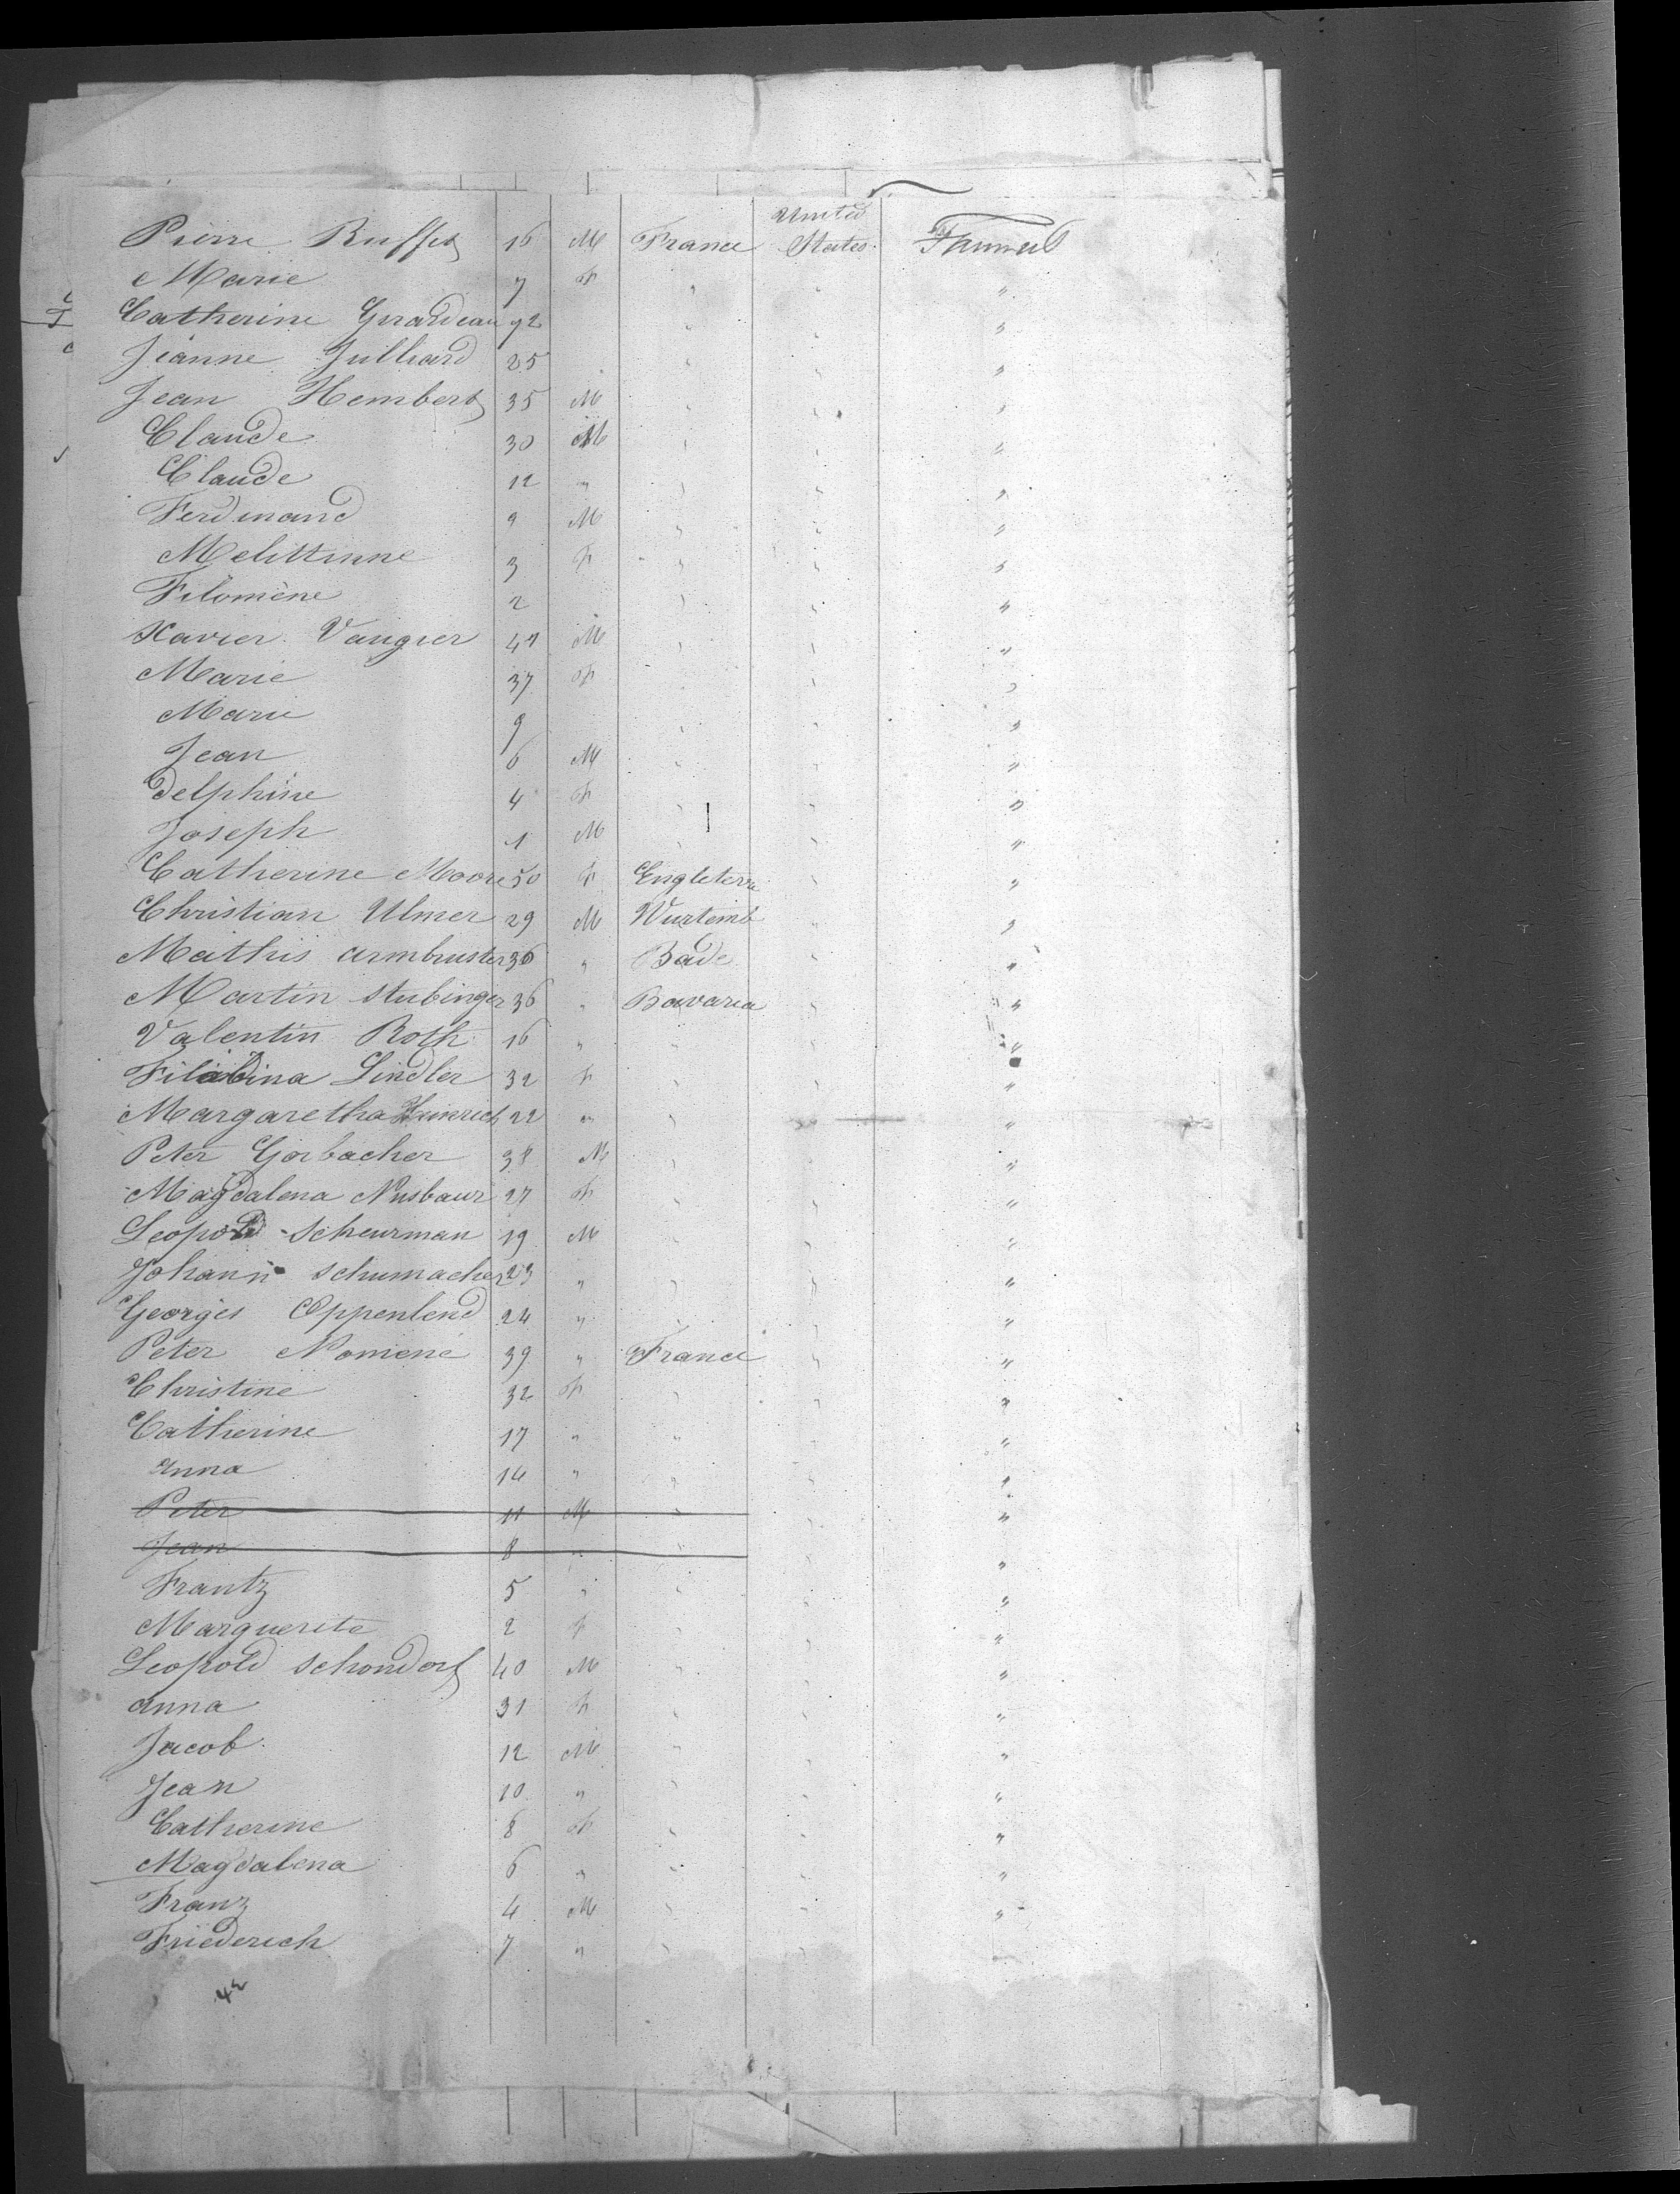 United
Pierre Buffet 16 M France States Farmer
Marie 7 F " " "
Catherine Girardeau 72 " " "
Jeanne Julliard 25 " " "
Jean Hembert 35 M " " "
Claude 30 M " " "
Claude 12 " " " "
Ferdinand 9 M " " "
Melittinne 3 F " " "
Filomène 2 " " "
Xavier Vaugier 47 M " " "
Marie 37 F " " "
Marie 9 " " "
Jean 6 M " " "
Delphine 4 F " " "
Joseph 1 M " " "
Catherine Moore 50 F Engleterre " "
Christian Ulmer 29 M Wurtemb " "
Mathis Armbruster 36 " Bade " "
Martin Stubinger 36 " Bavaria " "
Valentin Roth 16 " " " "
Filabina Lindler 32 F " " "
Margaretha Heinrich 22 " " " "
Peter Gorbacher 38 M " " "
Magdalena Nusbaur 27 F " " "
Leopold Scheurman 19 M " " "
Johann Schumacher 23 " " " "
Georges Oppenlend 24 " " " "
Peter Nomené 39 " France " "
Christine 32 F " " "
Catherine 17 " " " "
Anna 14 " " " "
Peter 11 M " " "
Jean 8 " " " "
Frantz 5 " " " "
Marguerite 2 F " " "
Leopold Schondorf 40 M " " "
Anna 31 F " " "
Jacob 12 M " " "
Jean 10 " " " "
Catherine 8 F " " "
Magdalena 6 " " " "
Franz 4 M " " "
Friederich 7 " " "
42